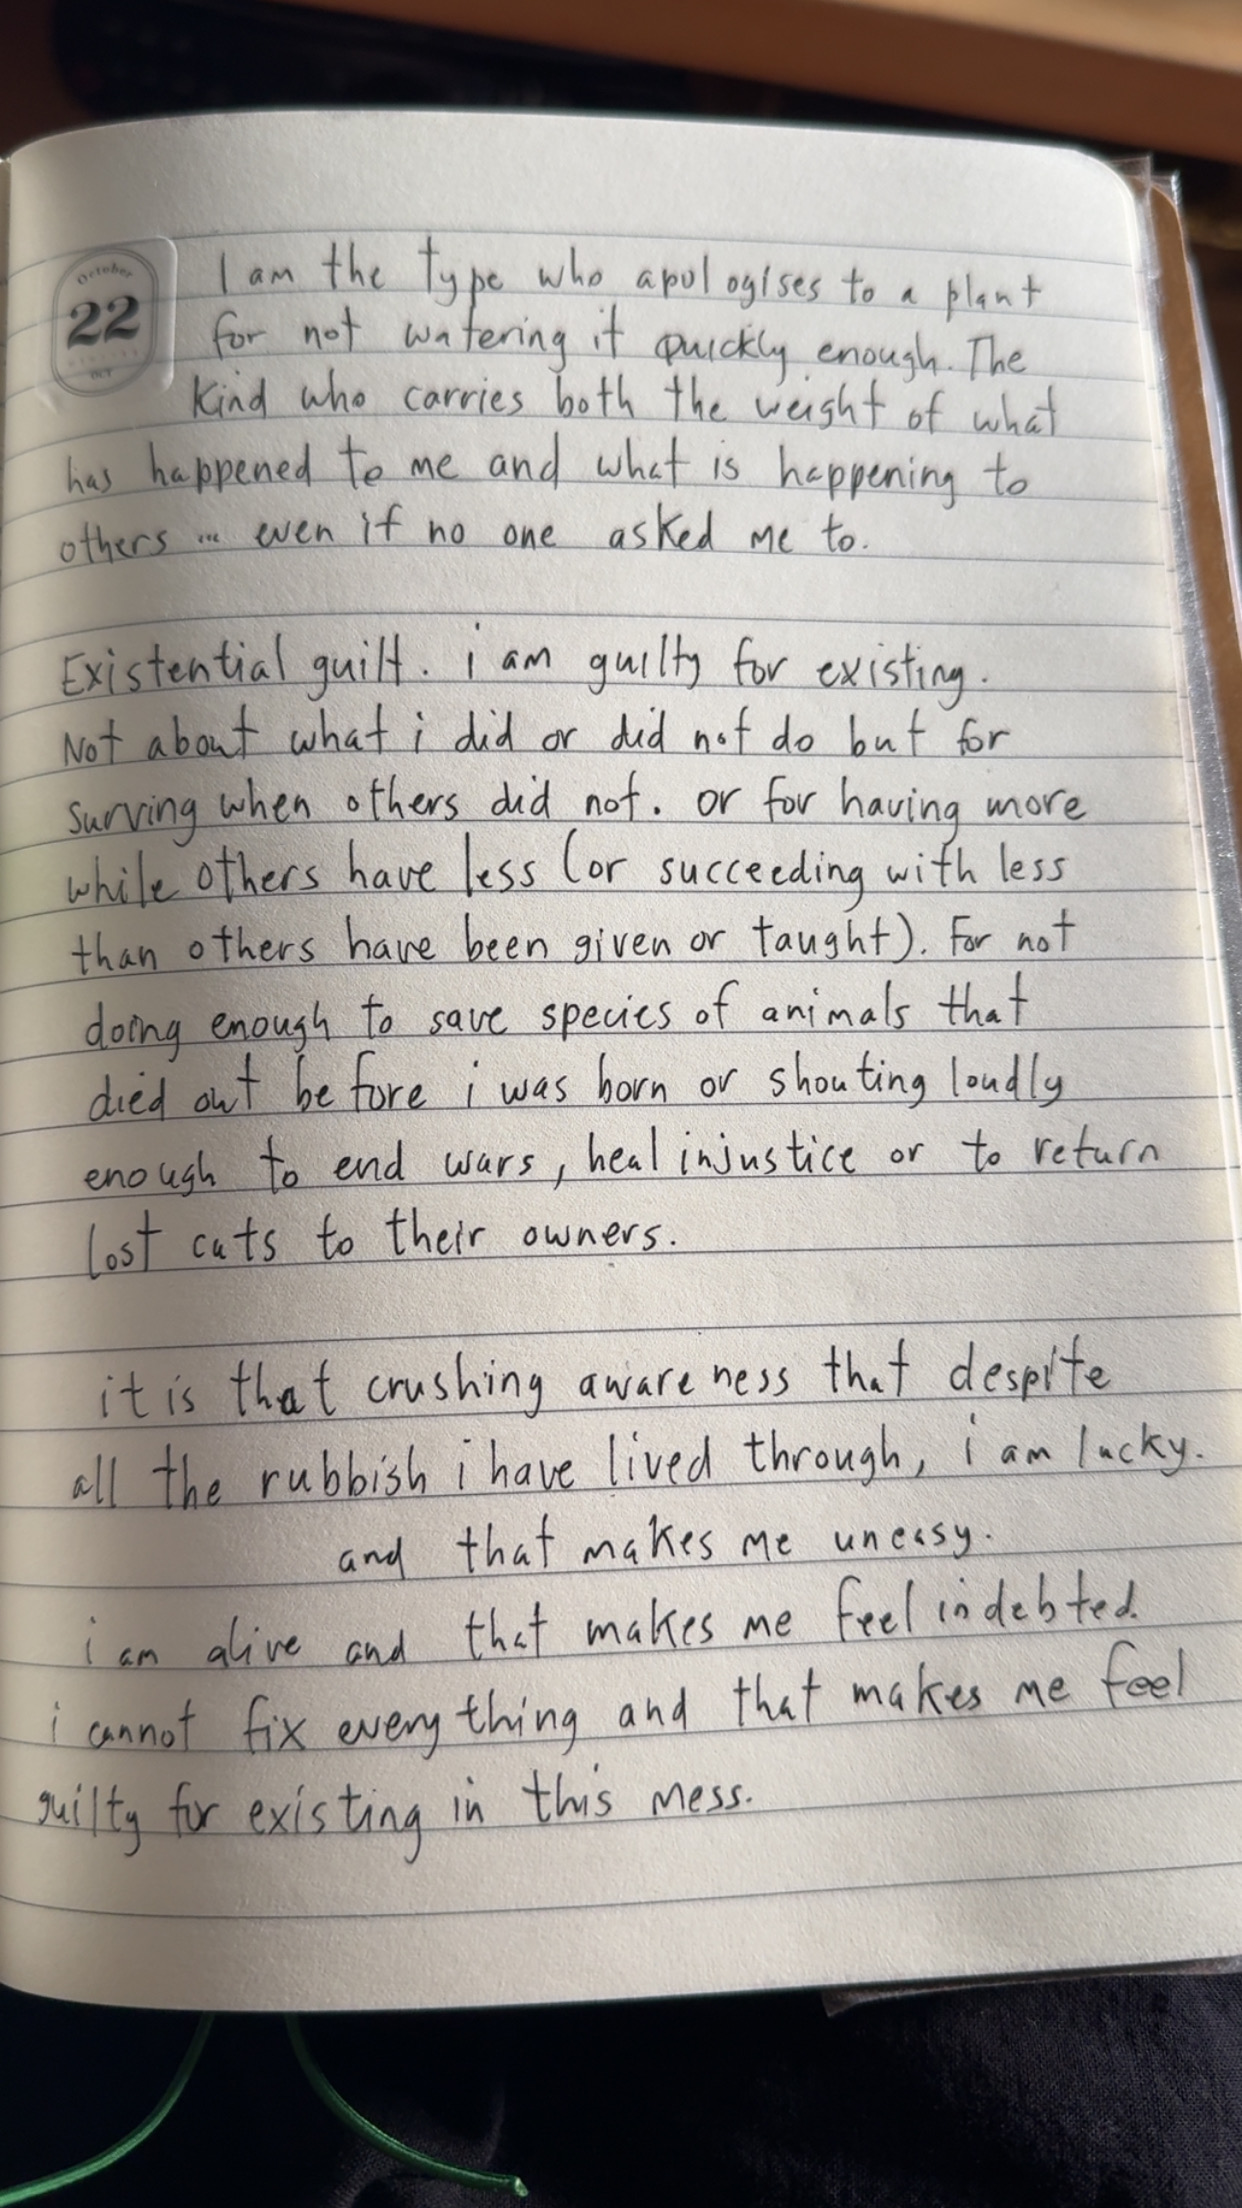 October
22
OCT
I am the type who apologises to a plant
for not watering it quickly enough. The
kind who carries both the weight of what
has happened to me and what is happening to
others ... even if no one asked me to.
Existential guilt. i am guilty for existing.
Not about what i did or did not do but for
surving when others did not. or for having more
while others have less (or succeeding with less
than others have been given or taught). For not
doing enough to save species of animals that
died out before i was born or shouting loudly
enough to end wars, heal injustice or to return
lost cats to their owners.
it is that crushing awareness that despite
all the rubbish i have lived through, i am lucky.
and that makes me uneasy.
i am alive and that makes me feel indebted.
i cannot fix everything and that makes me feel
guilty for existing in this mess.